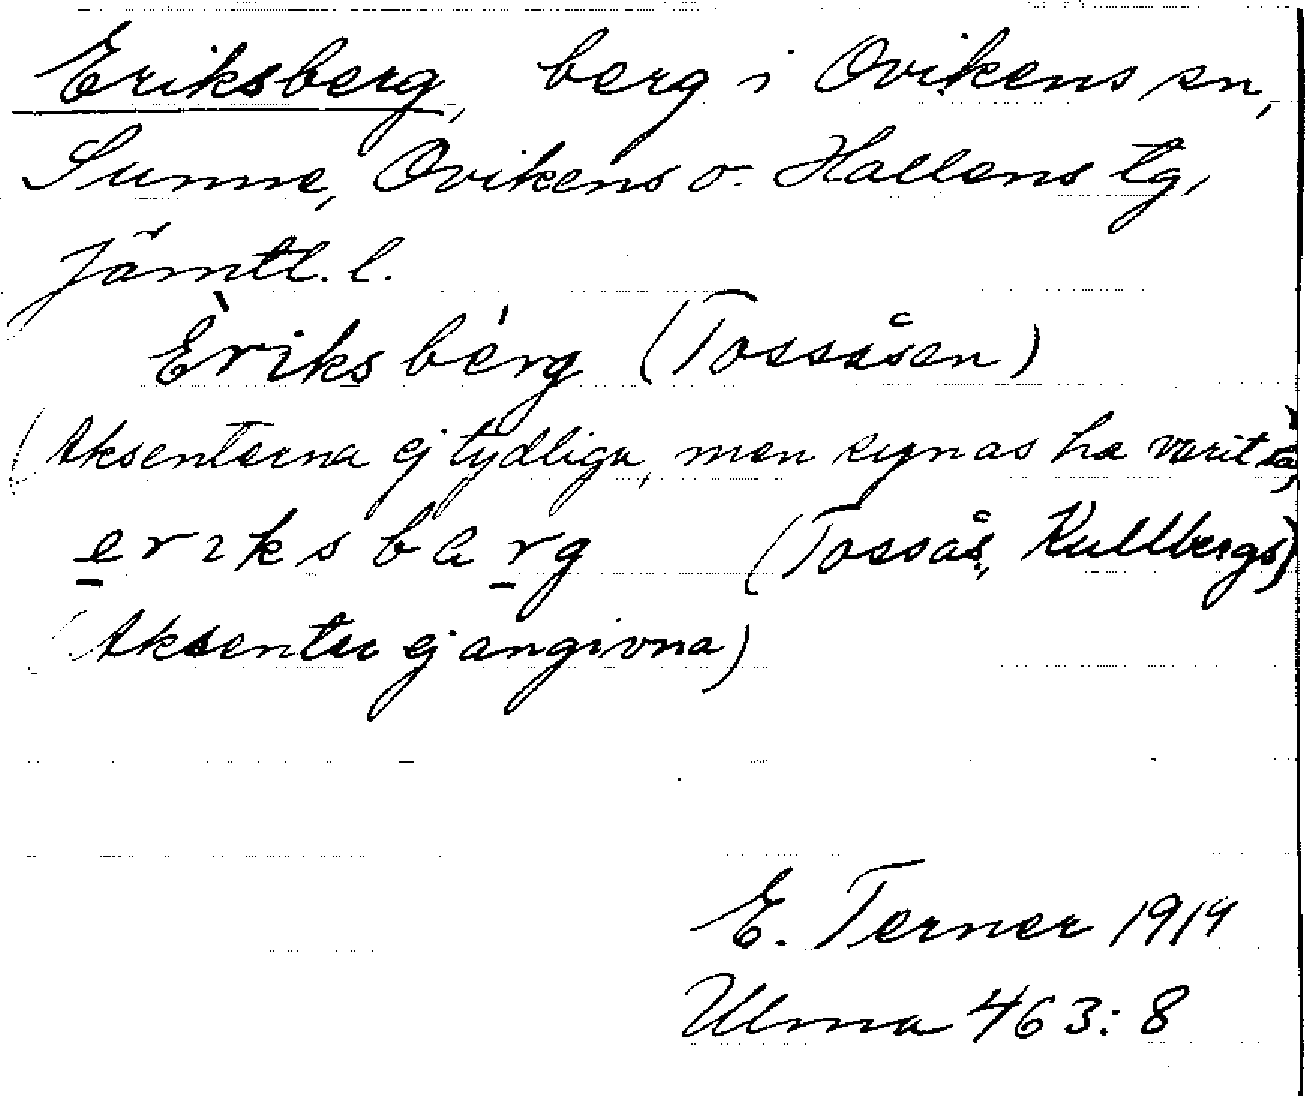 Eriksberg, berg i Ovikens sn,
Sunne, Ovikens o. Hallens tg,
Jämtl. l.
Èriksbérg (Tossåsen)
(Aksenterna ej tydliga, men synas ha varit så)
eriksbarg (Tossås, Kullbergs)
(Aksenter ej angivna)
E. Terner 1914
Ulma 463:8